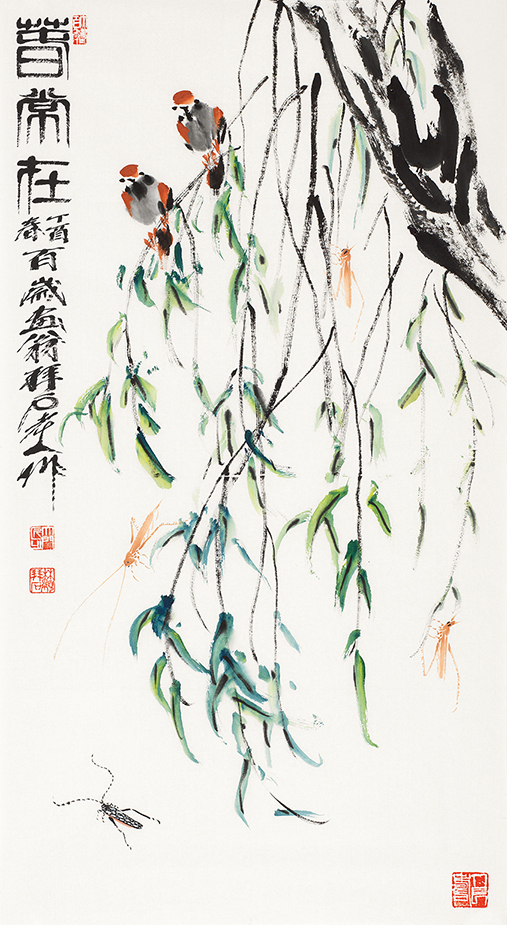 春常在
丁酉
春
百歲畫翁拜石老人作